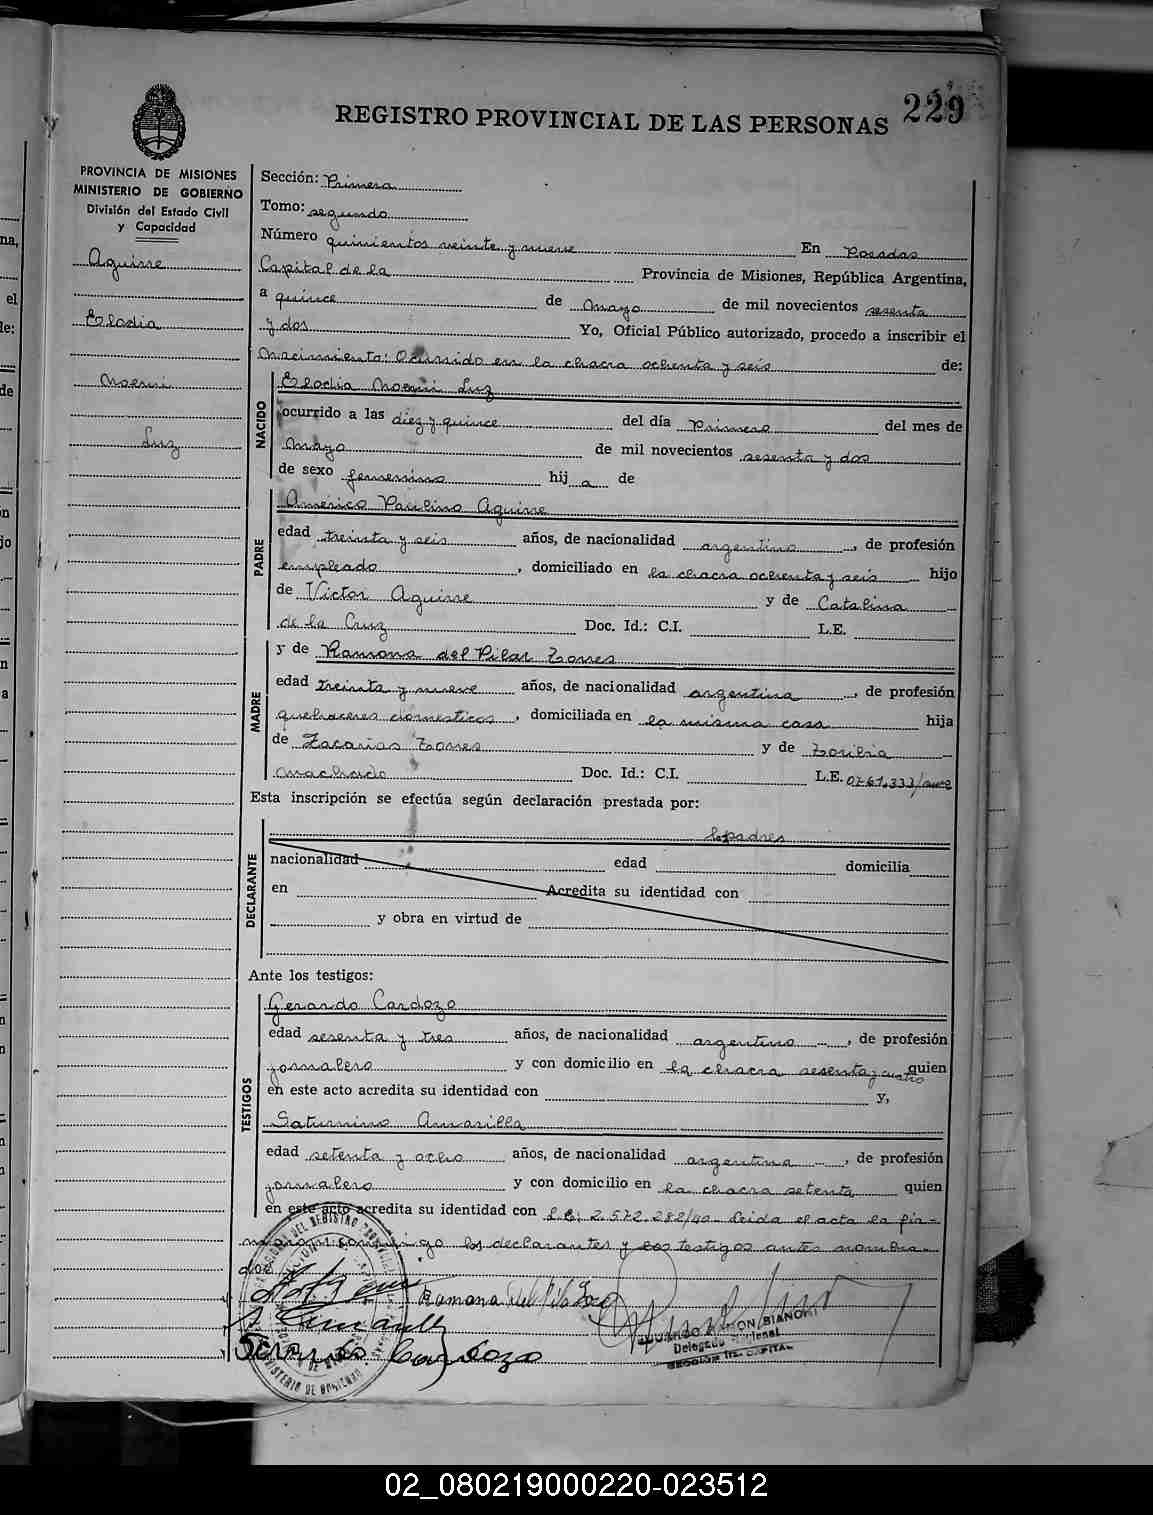 229
REGISTRO PROVINCIAL DE LAS PERSONAS
PROVINCIA DE MISIONES
MINISTERIO DE GOBIERNO
División del Estado Civil
y Capacidad
Aguirre
Elodia
Noemi
Luz
Sección: Primera
Tomo: segundo
Número quinientos veinte y nueve En Posadas
Capital de la Provincia de Misiones, República Argentina,
a quince de Mayo de mil novecientos sesenta
y dos Yo, Oficial Público autorizado, procedo a inscribir el
Nacimiento: Ocurrido en la chacra ochenta y seis de:
NACIDO
Elodia Noemi Luz
ocurrido a las diez y quince del día Primero del mes de
Mayo de mil novecientos sesenta y dos
de sexo femenino hij a de
PADRE
Américo Paulino Aguirre
edad treinta y seis años, de nacionalidad argentino, de profesión
empleado, domiciliado en la chacra ochenta y seis hijo
de Victor Aguirre y de Catalina
de la Cruz Doc. Id.: C.I. L.E.
MADRE
y de Ramona del Pilar Torres
edad treinta y nueve años, de nacionalidad argentina, de profesión
quehaceres domesticos, domiciliada en la misma casa hija
de Zacarias Torres y de Toribia
Machado Doc. Id.: C.I. L.E. 0761.333/
Esta inscripción se efectúa según declaración prestada por:
DECLARANTE
los padres
nacionalidad edad domicilia
en Acredita su identidad con
y obra en virtud de
Ante los testigos:
TESTIGOS
Gerardo Cardozo
edad sesenta y tres años, de nacionalidad argentino, de profesión
jornalero y con domicilio en la chacra sesenta y cuatro quien
en este acto acredita su identidad con y,
Saturnino Amarilla
edad setenta y ocho años, de nacionalidad argentina, de profesión
jornalero y con domicilio en la chacra setenta quien
en este acto acredita su identidad con L.E: 2.572.282/40. Leida el acta la fir-
man conmigo los declarantes y los testigos antes nombra-
dos
Ramona del Pilar
Gerardo Cardozo
EDUARDO RAMON BIANCHI
Delegado Seccional
SECCION 1ra. CAPITAL
02_080219000220-023512